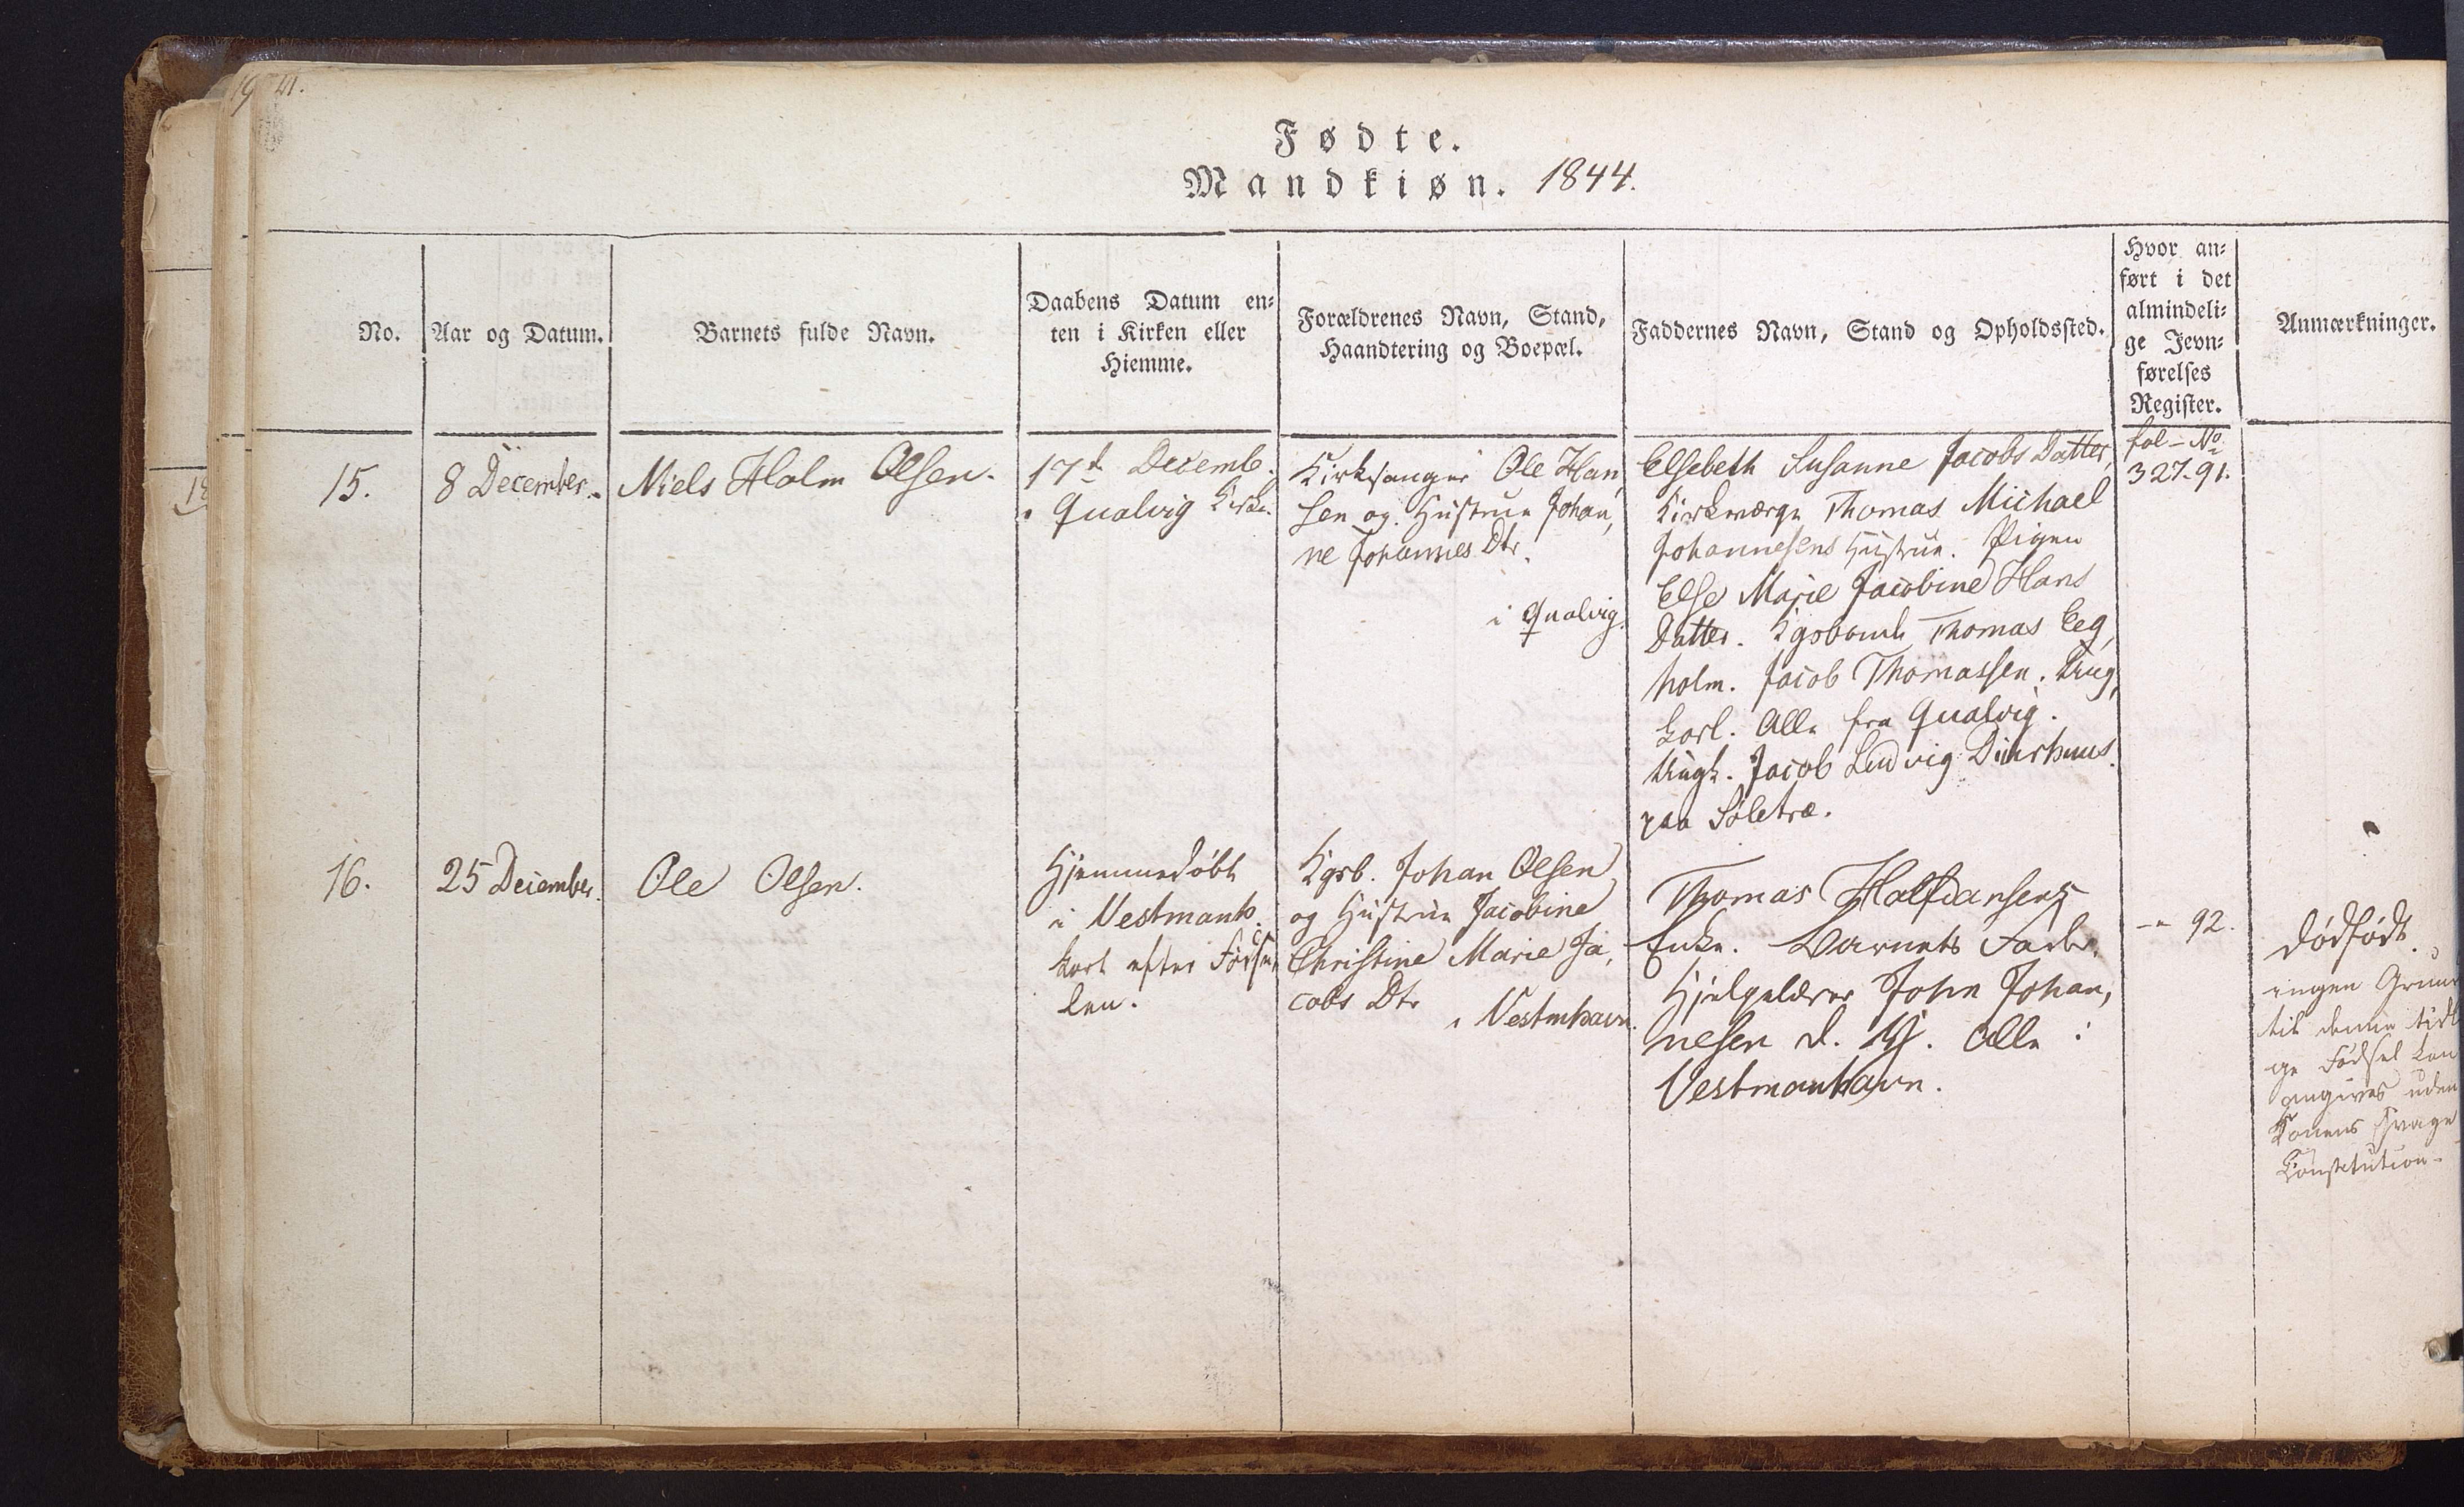 19 21.
Fødte.
Mandkiøn. 1844.
No.
Aar og Datum.
Barnets fulde Navn.
Daabens Datum en-
ten i Kirken eller
Hiemme.
Forældrenes Navn, Stand,
Haandtering og Boepæl.
Faddernes Navn, Stand og Opholdssted.
Hvor an-
ført i det
almindeli-
ge Jevn-
førelses
Register.
Anmærkninger.
15.
8 December.
Niels Holm Olsen.
17d Decemb.
i Qualvig Kirke.
Kirkesanger Ole Han,
sen og Hustrue Johan,
ne Johannes Dtr.
i Qualvig.
Elsebeth Susanne Jacobs Datter,
Kirkeværge Thomas Michael
Johannesens Hustrue. Pigen
Else Marie Jacobine Hans
Datter. Kgsbonde Thomas Eeg,
holm. Jacob Thomassen. Ung,
karl. Alle fra Qualvig.
Ungk. Jacob Ludvig Diurhuus
paa Siletræ.
fol - No
327. 91.
16.
25 December.
Ole Olsen.
Hjemmedøbt
i Vestmanh.
kort efter Fødse
len.
Kgsb. Johan Olsen
og Hustrue Jacobine
Christine Marie Ja,
cobs Dtr
i Vestmhavn.
Thomas Halfdansens
Enke. Barnets Fader.
Hjelpelærer John Johan,
nesen d. Y. Alle i
Vestmanhavn.
-" 92.
Dødfødt.
ingen Grun
til denne tidl
ge Fødsel kan
angives uden
Konens svage
Constitution-